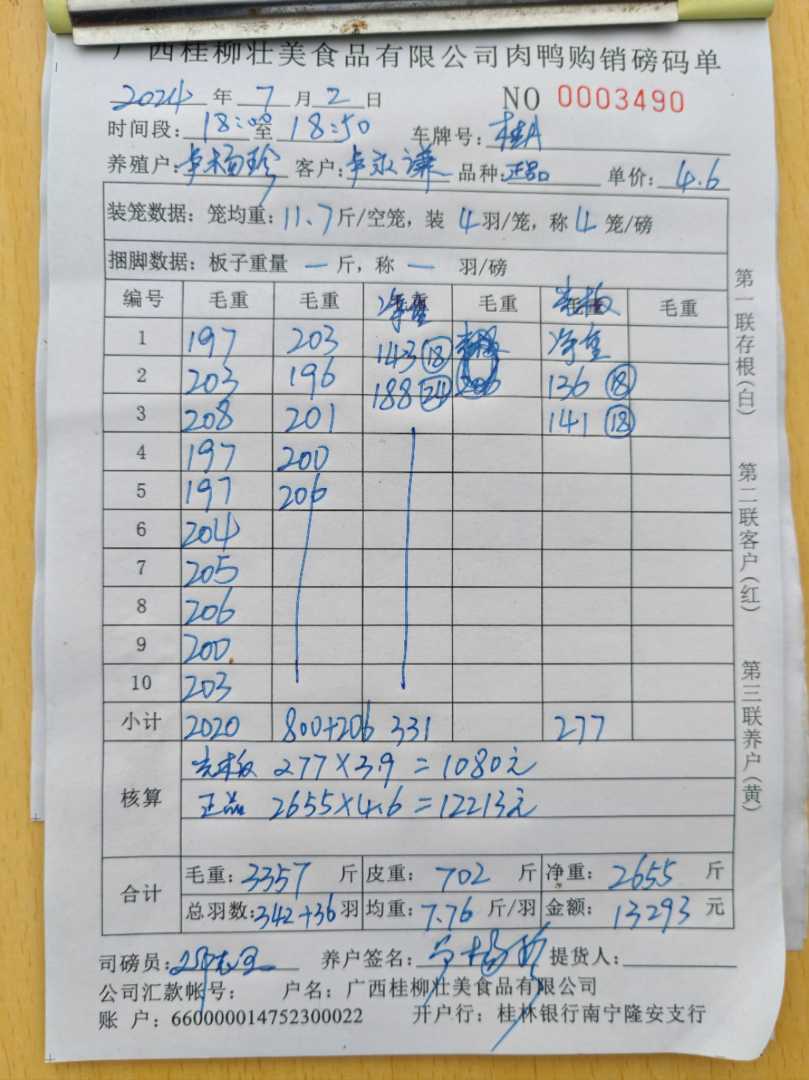 广西桂柳壮美食品有限公司肉鸭购销磅码单
2024 年 7 月 2 日 NO 0003490
时间段: 18:00 至 18:50 车牌号: 桂A
养殖户: 卓杨珍 客户: 卓永谦 品种: 正品 单价: 4.6
装笼数据: 笼均重: 11.7 斤/空笼, 装 4 羽/笼, 称 4 笼/磅
捆脚数据: 板子重量 一 斤, 称 一 羽/磅
编号 毛重 毛重 净重 毛重 毛重
1 197 203 143 (18) 净重
2 203 196 188 (24) 206 136 (18)
3 208 201 141 (18)
4 197 200
5 197 206
6 204
7 205
8 206
9 200
10 203
小计 2020 800+206 331 277
核算 277×3.9=1080元
正品 2655×4.6=12213元
合计 毛重: 3357 斤 皮重: 702 斤 净重: 2655 斤
总羽数: 342+36 羽 均重: 7.76 斤/羽 金额: 13293 元
司磅员: 养户签名: 卓杨珍 提货人:
公司汇款帐号: 户名: 广西桂柳壮美食品有限公司
账 户: 660000014752300022 开户行: 桂林银行南宁隆安支行
第一联存根(白)
第二联客户(红)
第三联养户(黄)